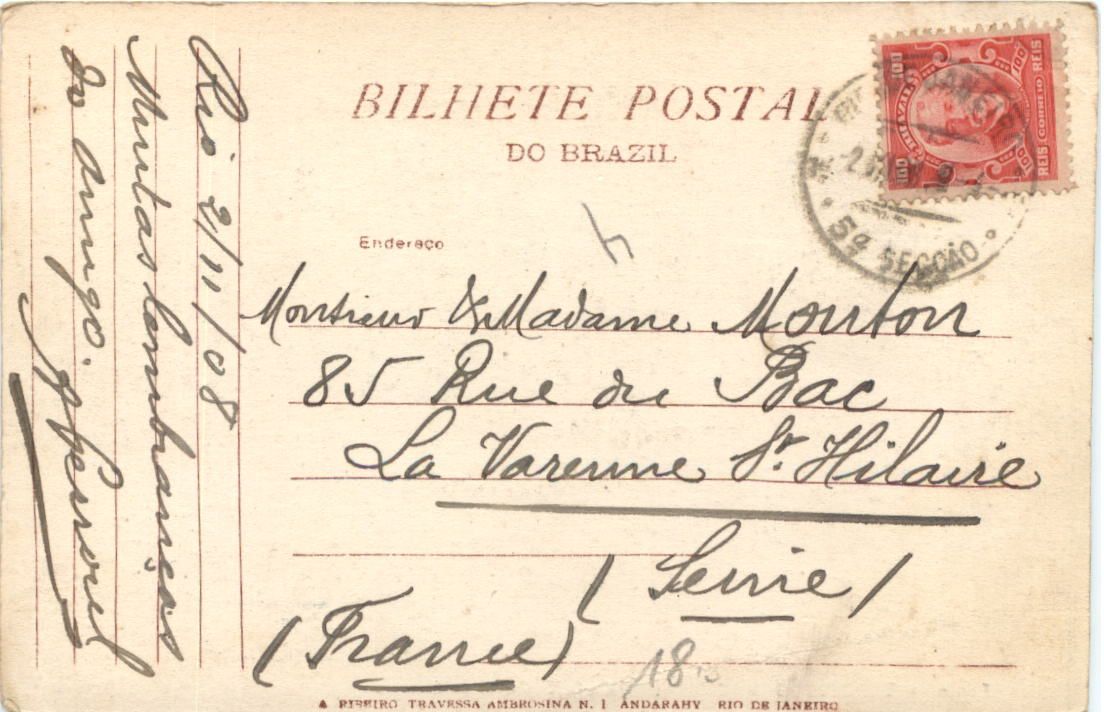 BILHETE POSTAL
DO BRAZIL
100 REIS
CORREIO
100 REIS
5ª SECÇÃO
Endereço
Monsieur & Madame Mouton
85 Rue du Bac
La Varenne St. Hilaire
(Seine)
(France)
18
Rio 2/11/08
Muitas lembranças
do amigo.
A RIBEIRO TRAVESSA AMBROSINA N. 1 ANDARAHY RIO DE JANEIRO